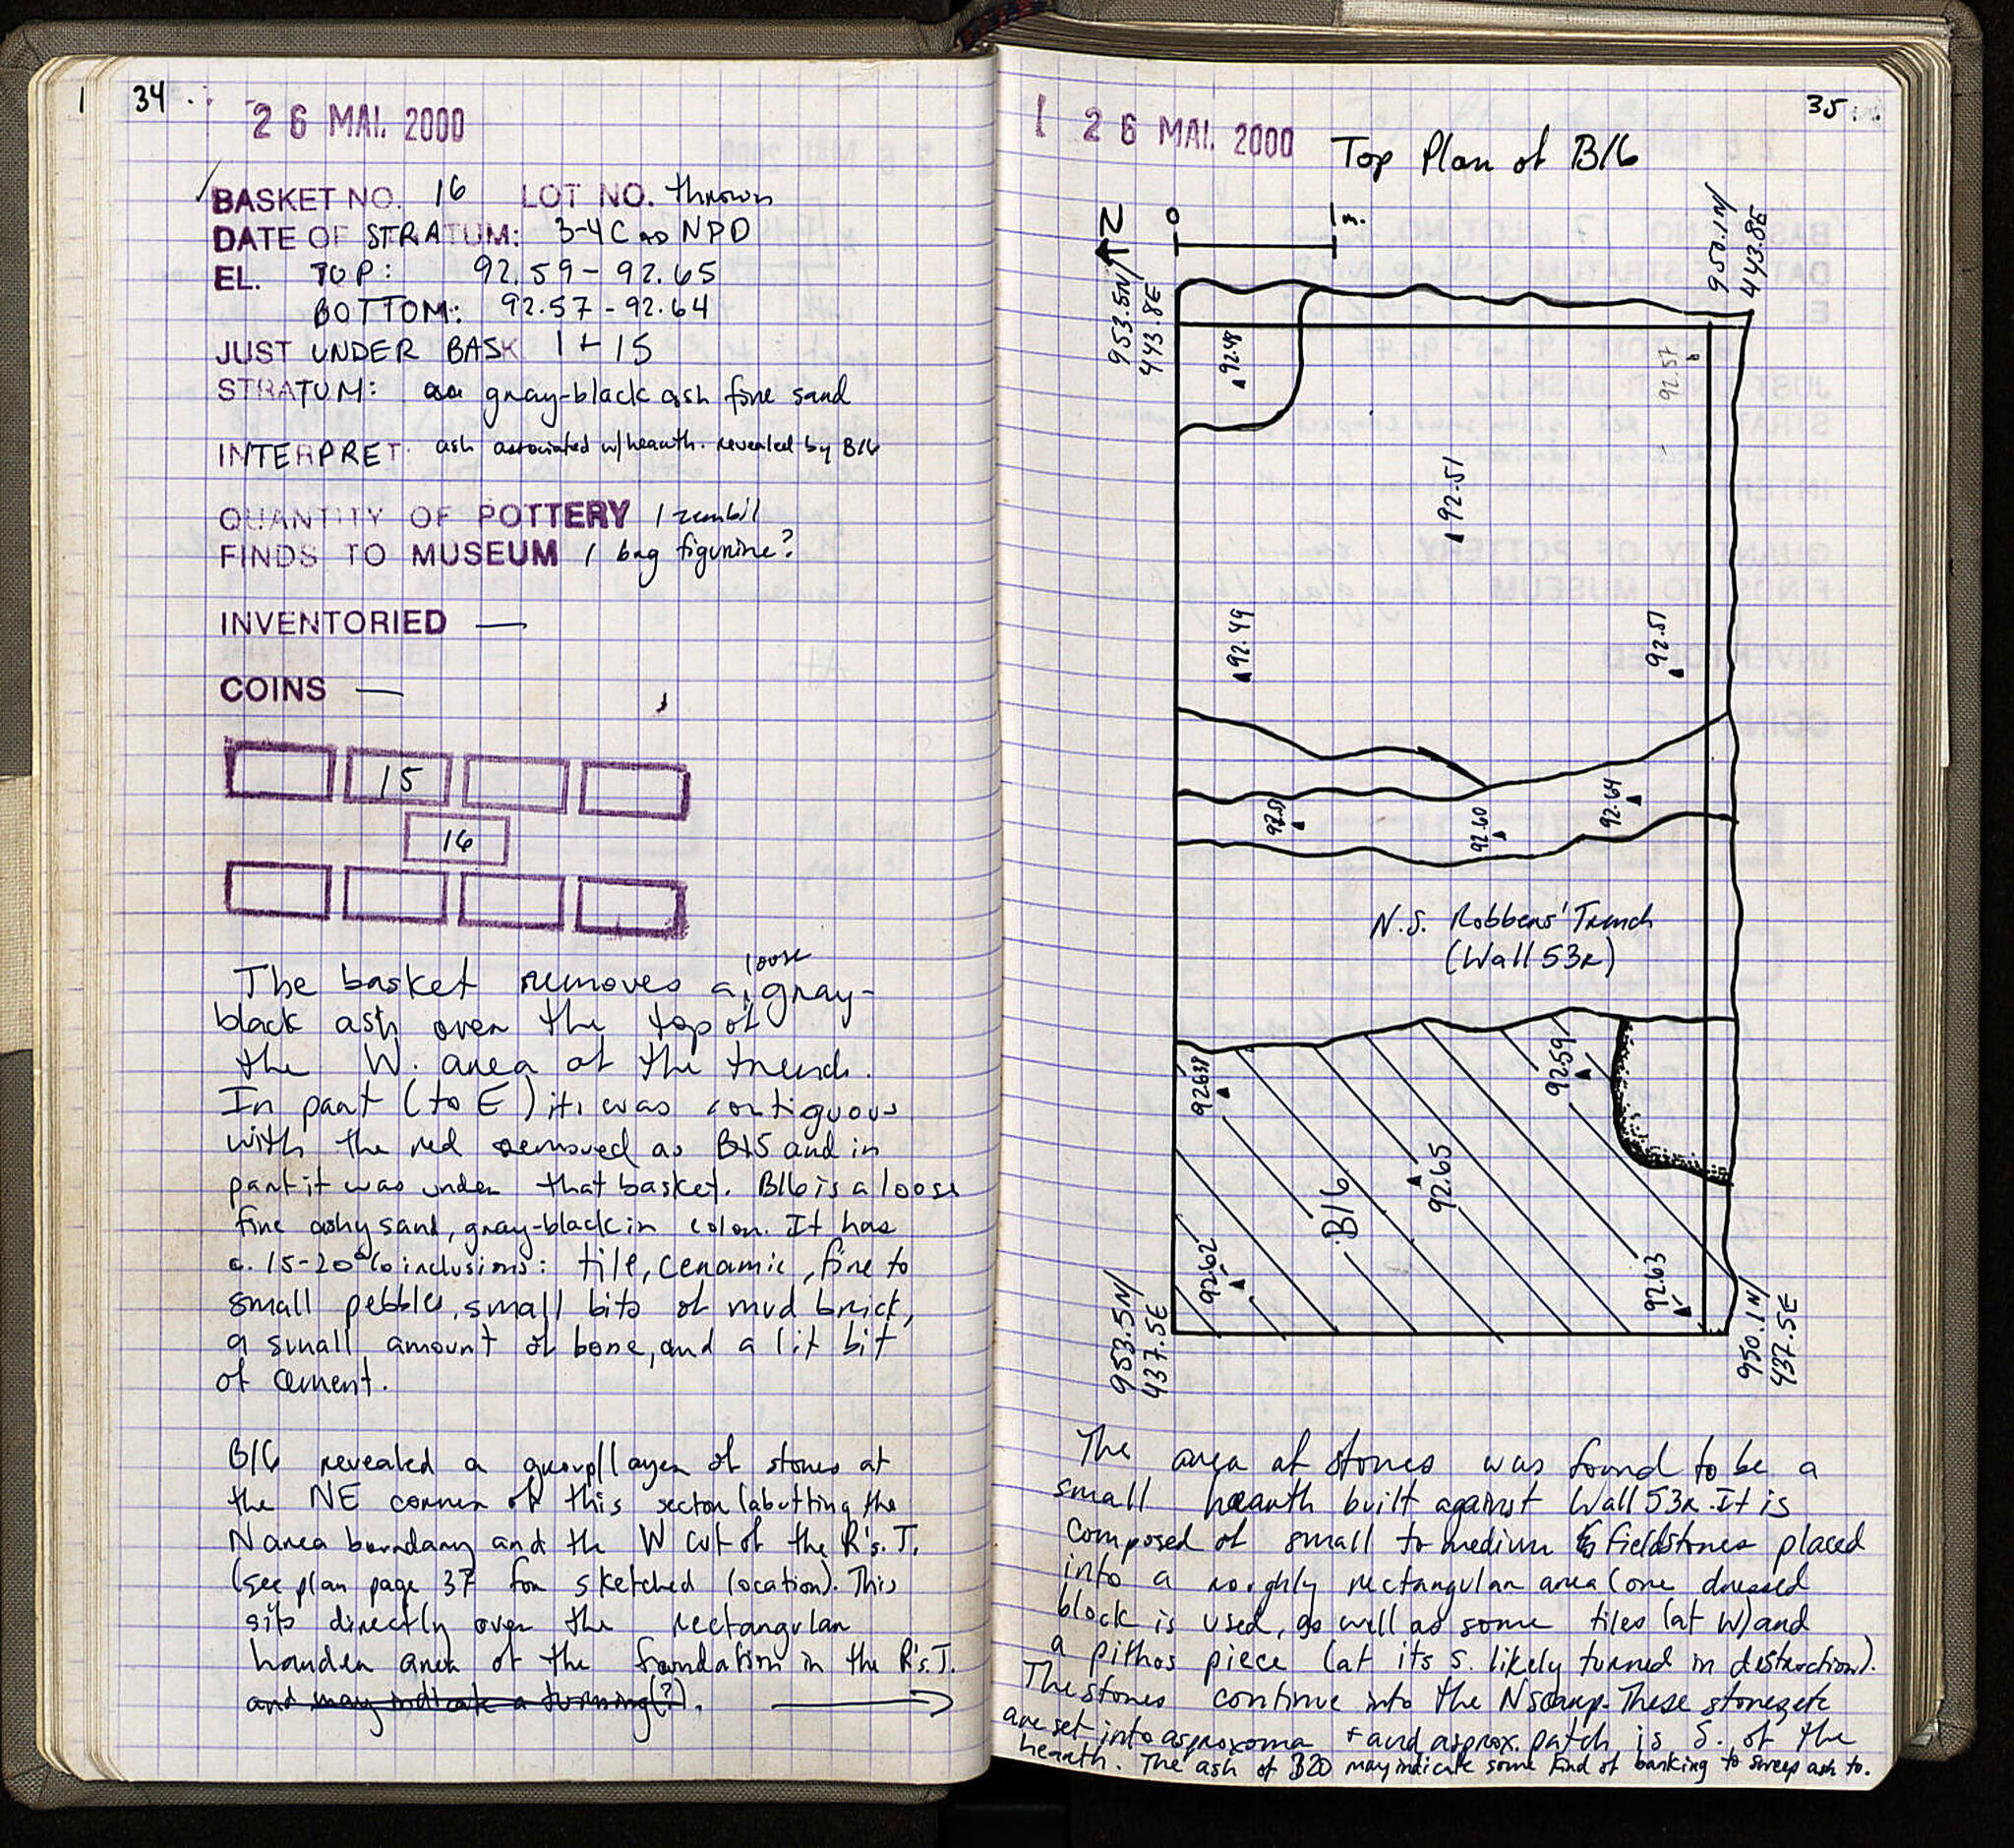 34
26 MAI. 2000
BASKET NO. 16 LOT NO. thrown
DATE OF STRATUM: 3-4C NPD
EL. TOP: 92.59 - 92.65
BOTTOM: 92.57 - 92.64
JUST UNDER BASK 1 + 15
STRATUM: gray-black ash fine sand
INTERPRET: ash associated w/hearth. revealed by B16
QUANTITY OF POTTERY 1 zembil
FINDS TO MUSEUM 1 bag figurine?
INVENTORIED —
COINS —
15
16
The basket removes a loose gray-
black ash over the top of
the W. area of the trench.
In part (to E) it was contiguous
with the red removed as B15 and in
part it was under that basket. B16 is a loose
fine ashy sand, gray-black in color. It has
c. 15-20% inclusions: tile, ceramic, fine to
small pebbles, small bits of mud brick,
a small amount of bone, and a lit bit
of cement.
B16 revealed a group/layer of stones at
the NE corner of this sector (abutting the
N area boundary and the W cut of the R's.T.
(see plan page 37 for sketched location). This
sits directly over the rectangular
harder area of the foundation in the R's.T.
and may indicate a turning(?).
35
26 MAI. 2000 Top Plan of B16
N
0 1 m.
953.5N/
443.8E
950.1N/
443.8E
92.48
92.57
92.51
92.49
92.57
92.60
92.64
N.S. Robbers' Trench
(Wall 53R)
92.59
92.65
B16
92.62
92.63
953.5N/
437.5E
950.1N/
437.5E
The area of stones was found to be a
small hearth built against Wall 53R. It is
composed of small to medium fieldstones placed
into a roughly rectangular area (one dressed
block is used, as well as some tiles (at W) and
a pithos piece (at its S. likely turned in destruction).
The stones continue into the N scarp. These stones etc
are set into and approx. patch is S. of the
hearth. The ash of B20 may indicate some kind of banking to sweep ash to.